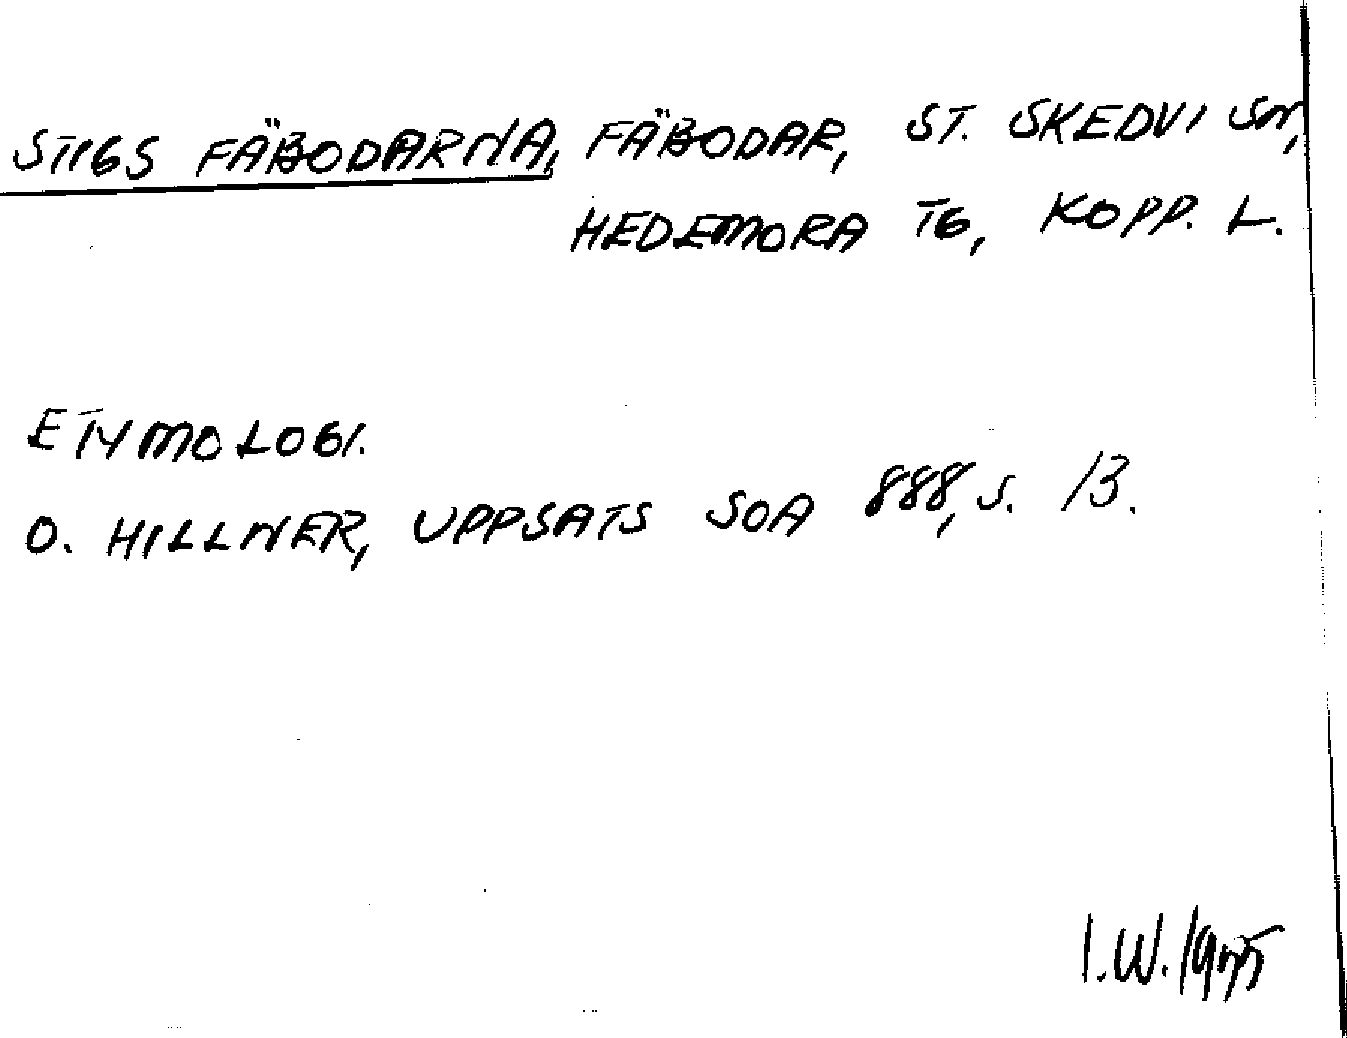 STIGS FÄBODARNA, FÄBODAR, ST. SKEDVI SN,
HEDEMORA TG, KOPP. L.
ETYMOLOGI.
O. HILLNER, UPPSATS SOA 888, S. 13.
I.W.